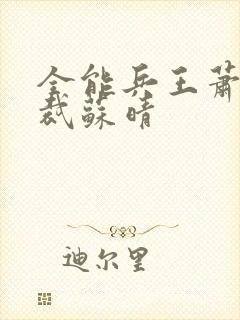 全能兵王萧
裁蘇晴
迪尔里